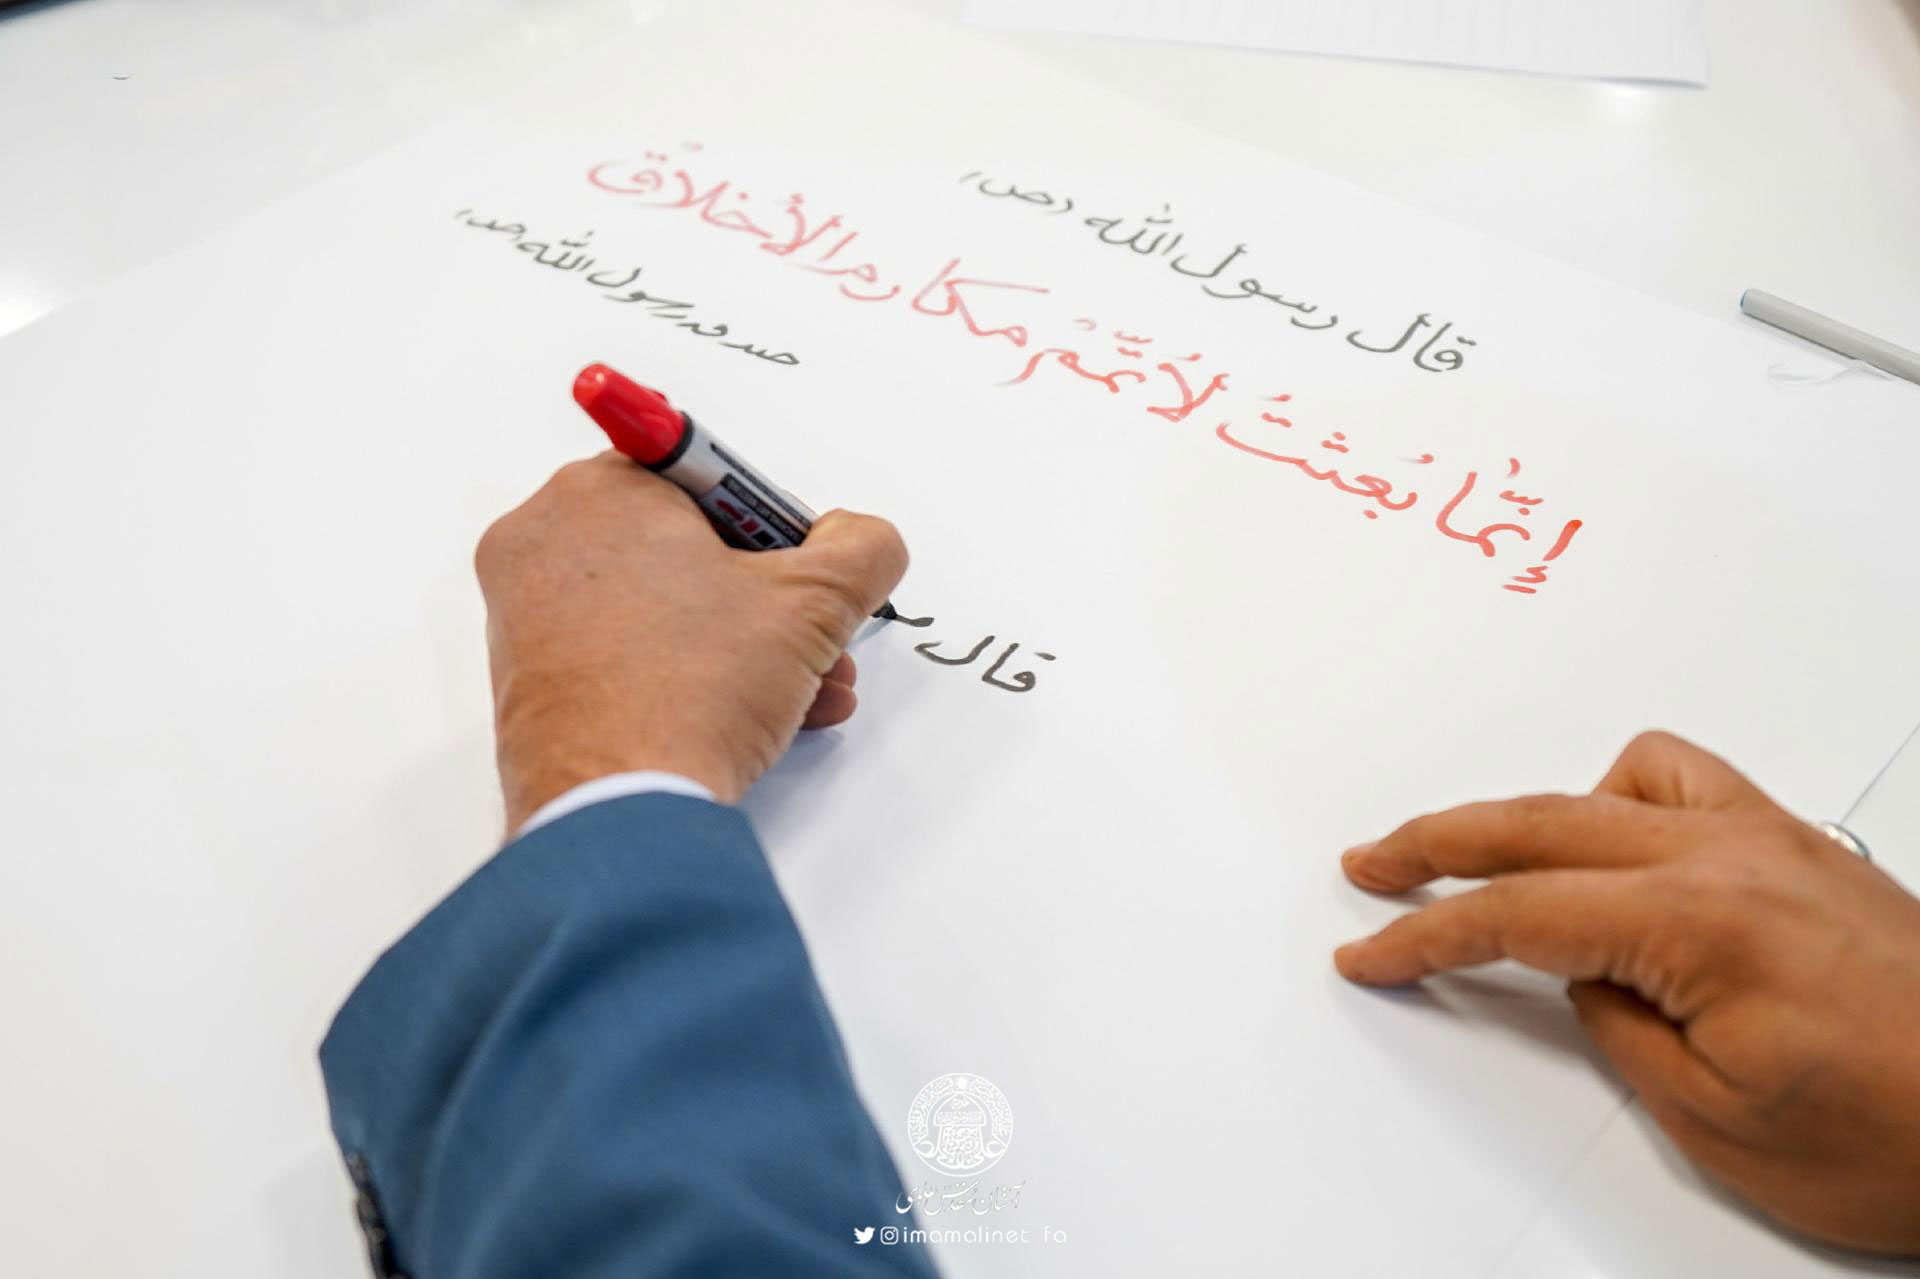 قال رسول الله (ص)
إنّما بُعثتُ لأُتمّمُ مكارم الأخلاقُ
صدق رسول الله (ص)
قال
آستان مقدس علوی
imamalinet_fa